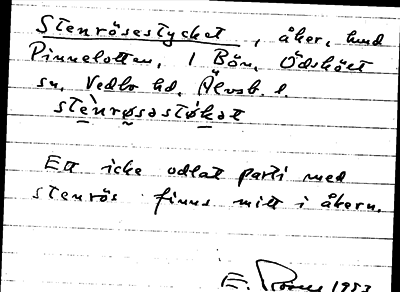 Stenrösestycket, åker, hmd
Pinnelotten, 1 Bön, Ödskölt
sn, Vedbo hd, Älvsb. l.
stènrøsəstøkət
Ett icke odlat parti med
stenrös finns mitt i åkern.
E. 1953